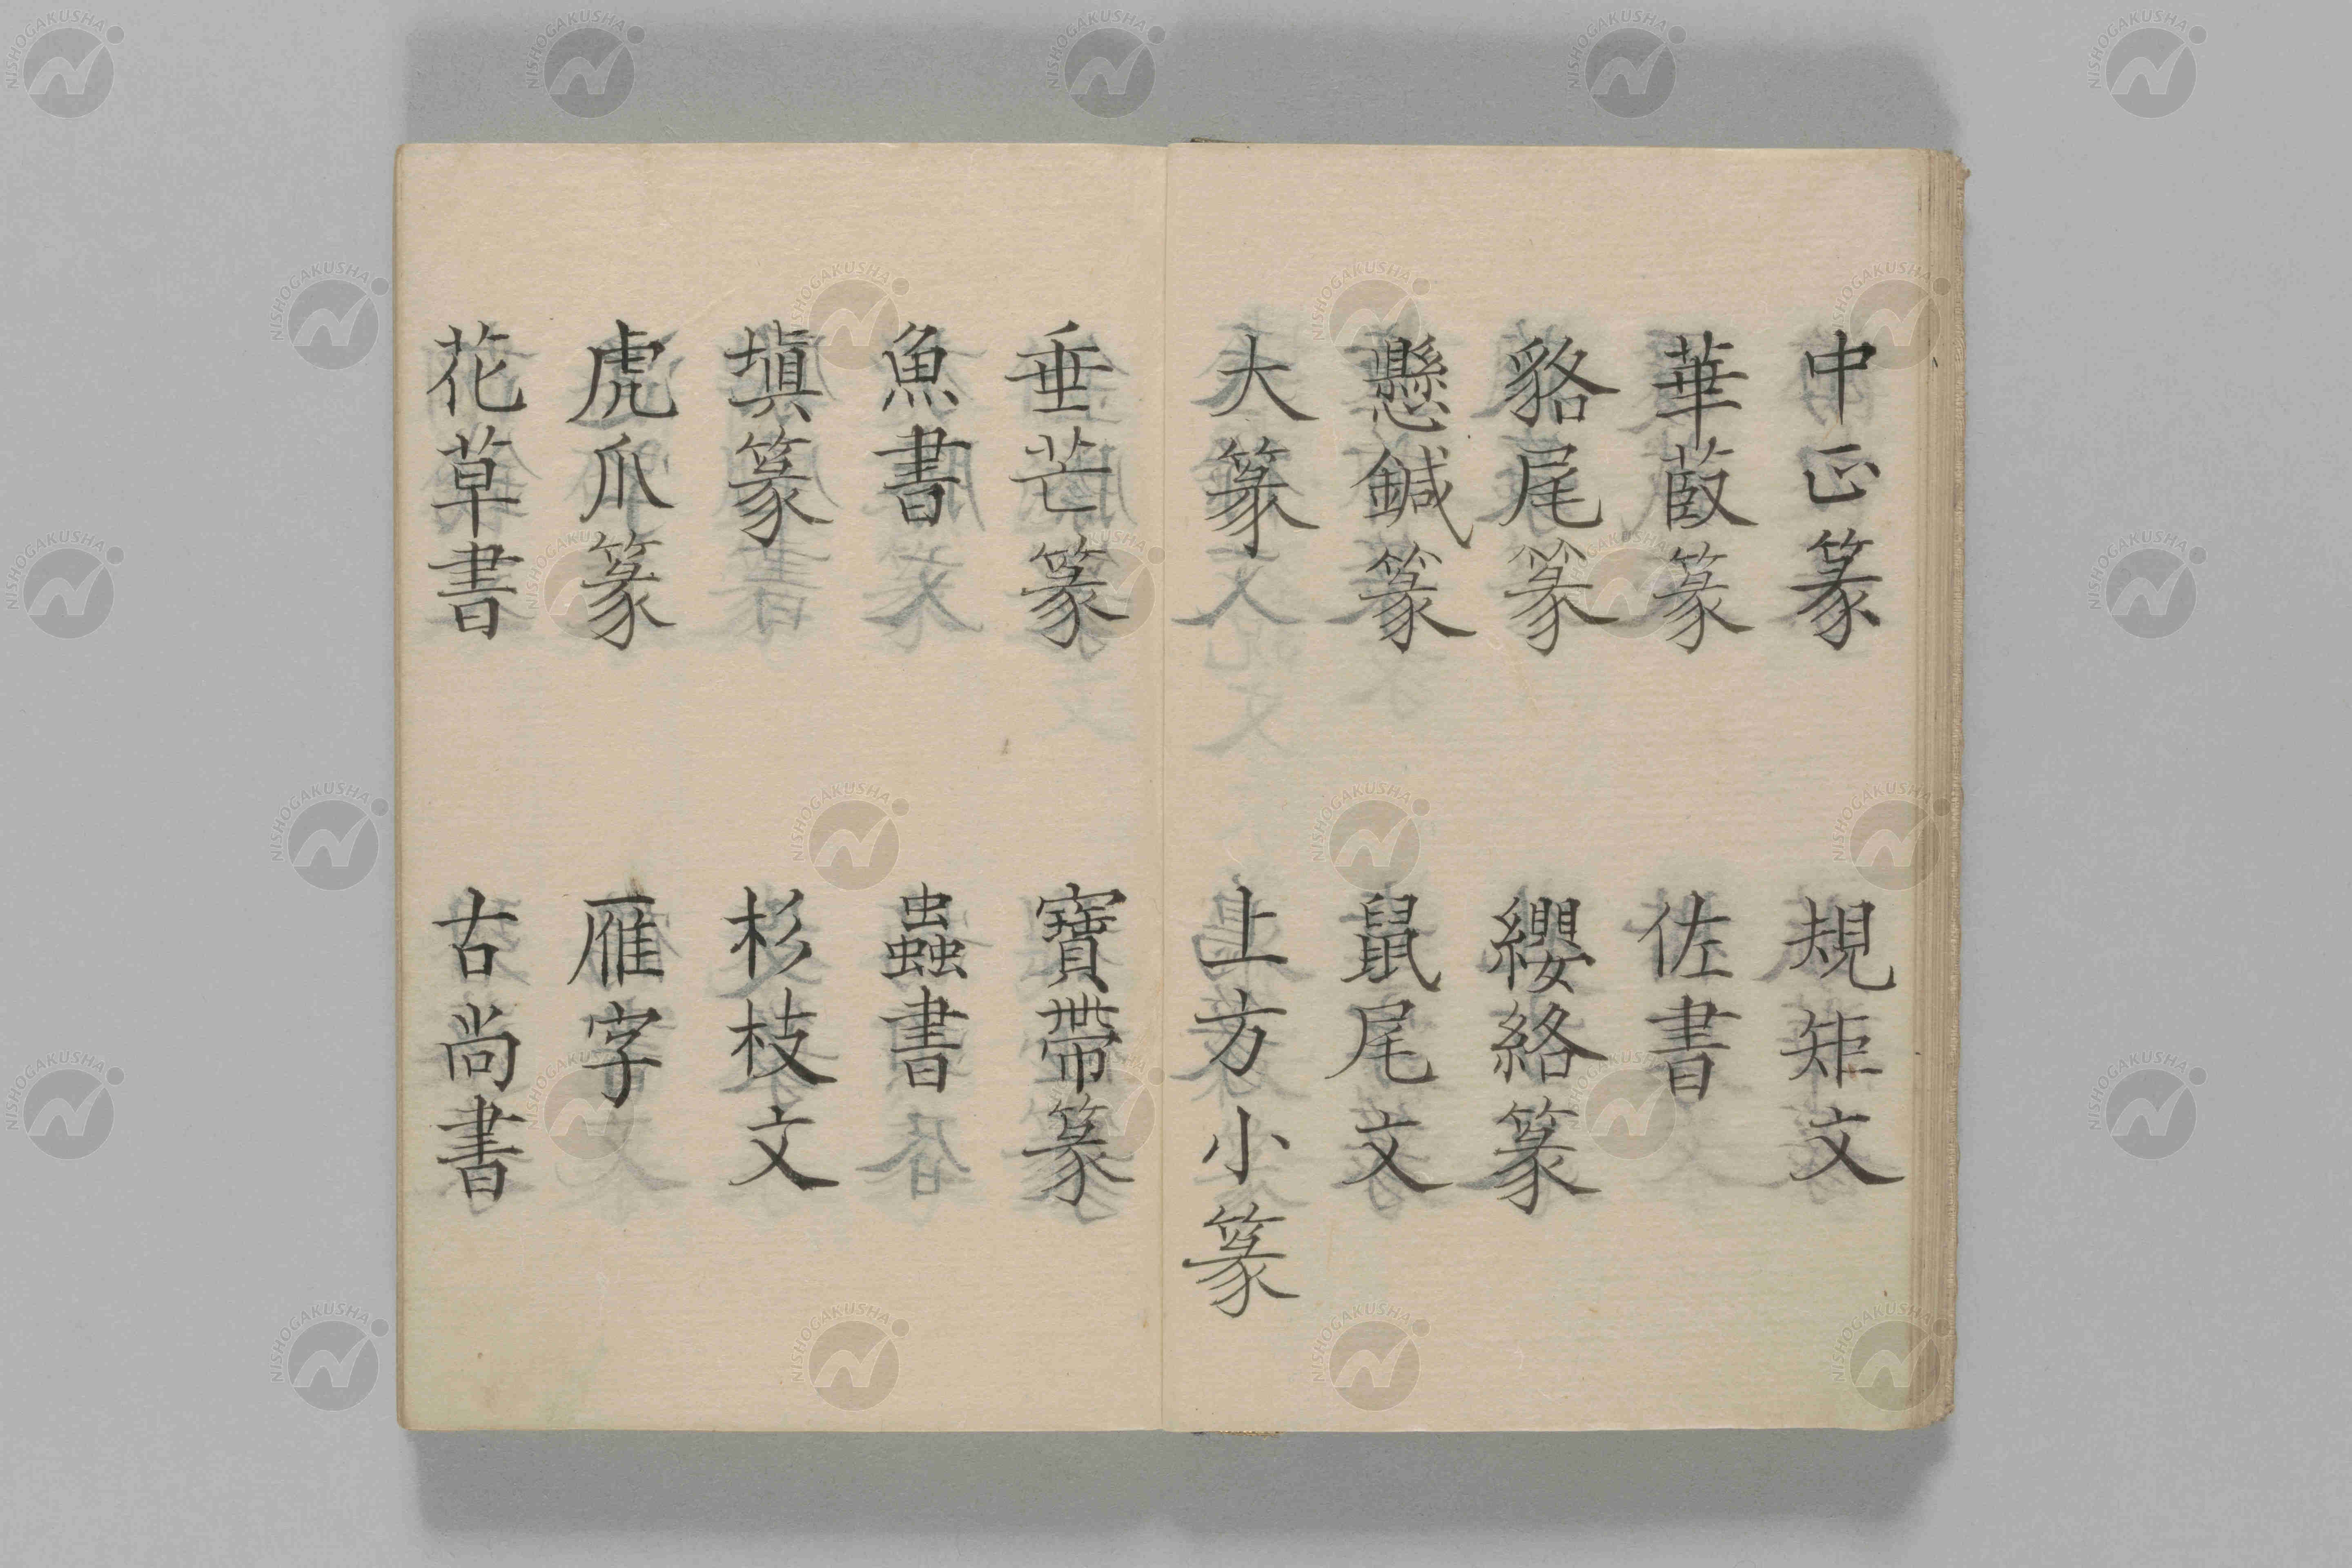 中正篆　規矩文
華葭篆　佐書
貉尾篆　纓絡篆
懸鍼篆　鼠尾文
大篆　上方小篆
垂芒篆　寶帶篆
魚書　蟲書
塡篆　杉枝文
虎爪篆　雁字
花草書　古尚書
NISHOGAKUSHA